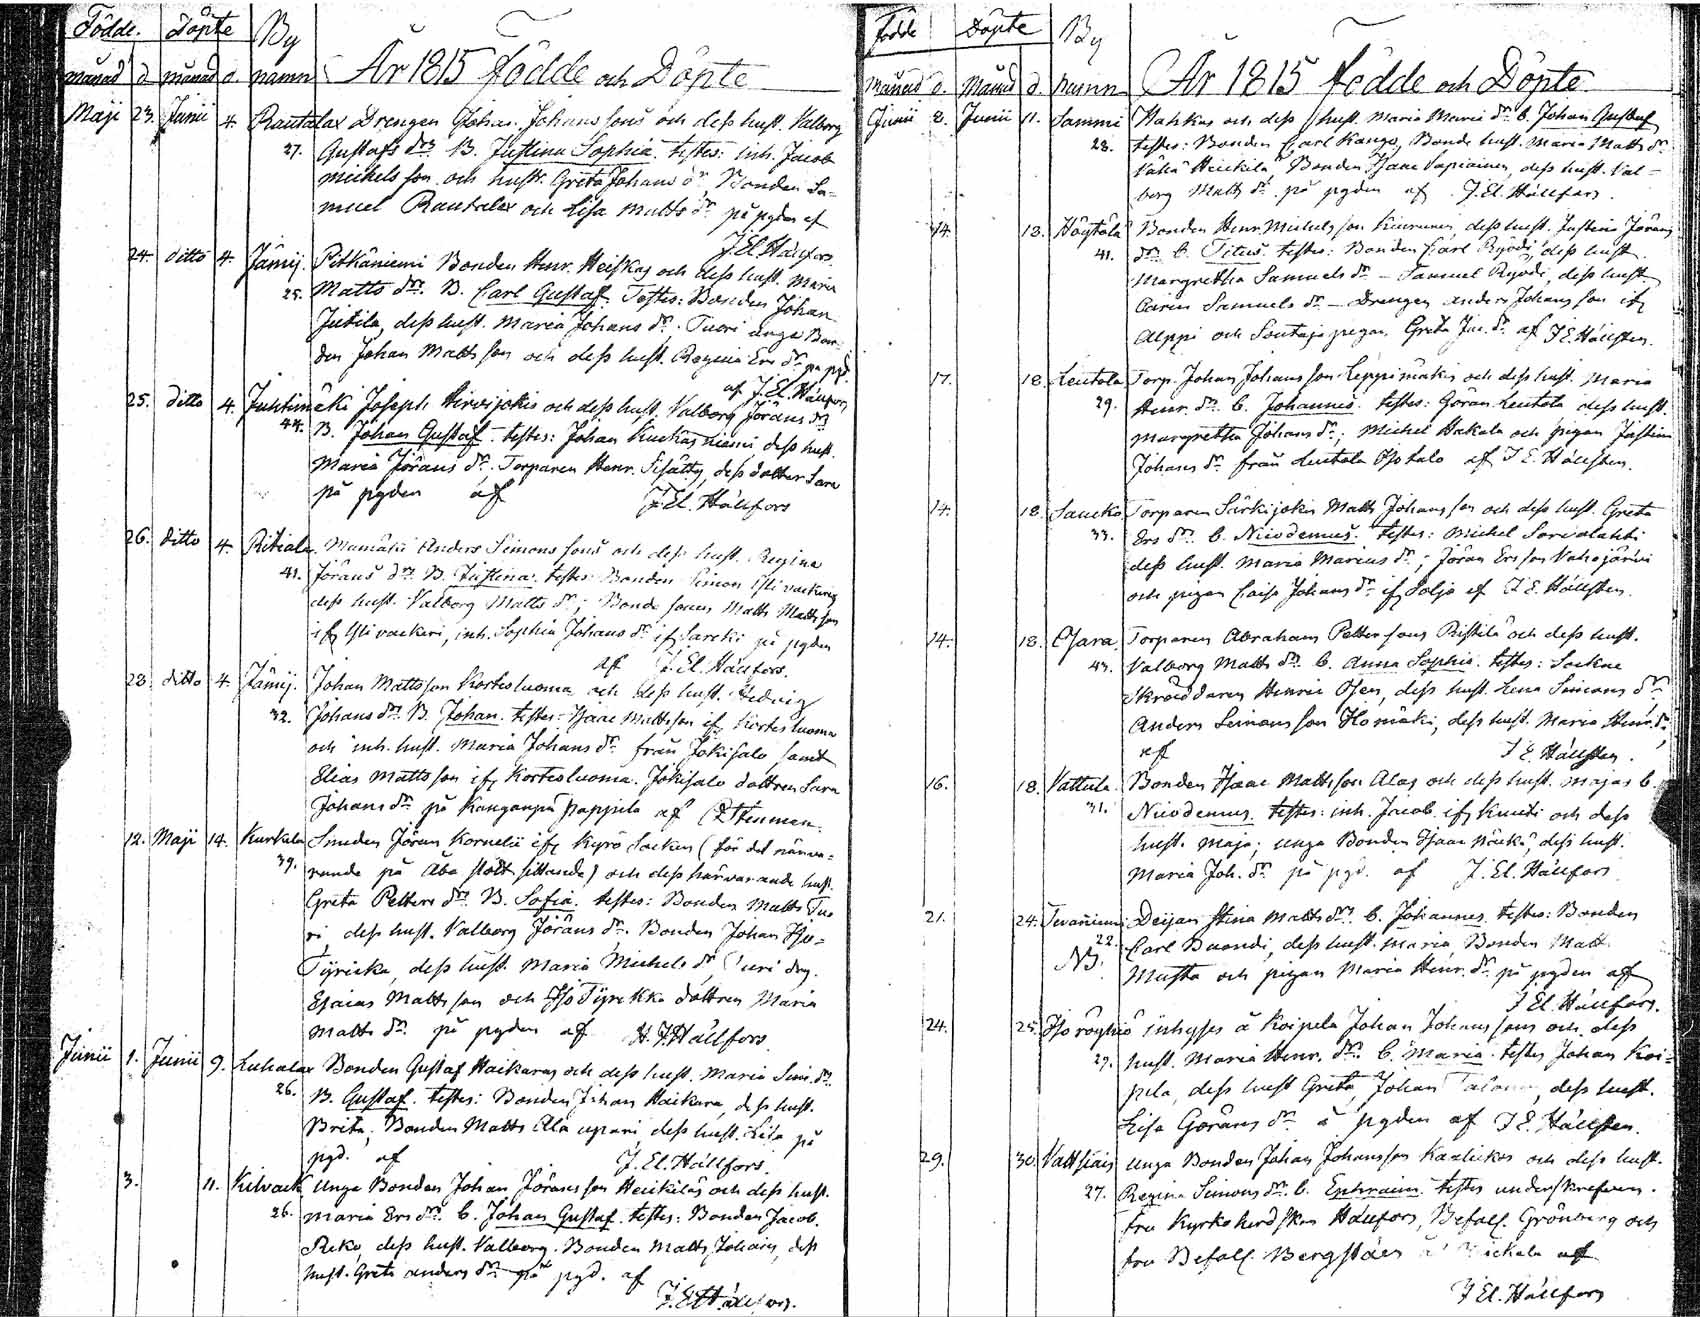 Födde. Döpte By
månad d. månad d. namn År 1815 Födde och Döpte
Maji 23. Junii 4. Rautalax Drengen Johan Johans sons och dess hust. Valborg
27. Gustafs dr. B. Justina Sophia. testes: inh. Jacob
Mickels son och hustr. Greta Johans dr, Bonden Sa-
muel Rautalax och Lisa Matts dr på pgden af
J. El. Hällfors.
24. ditto 4. Jämij. Pitkäniemi Bonden Henr. Heiskas och dess hust. Maria
25. Matts dr. B. Carl Gustaf. Testes: Bonden Johan
Jutila, dess hust. Maria Johans dr. Tuori unga Bon-
den Johan Matts son och dess hust. Regina Ers dr på pgd.
af J. El. Hällfors
25. ditto 4. Juhtimäki Joseph Hirvijokis och dess hust. Valborg Jörans dr
44. B. Johan Gustaf. testes: Johan Kuckasniemi dess hust.
Maria Jörans dr. Torparen Henr. Sisätty, dess dotter Sara
på pgden af J. El. Hällfors
26. ditto 4. Ritiala Mamäki Anders Simons sons och dess hust. Regina
41. Jörans dr. B. Justina. testes: Bonden Simon Yli vackuri
dess hust. Valborg Matts dr; Bonde sonen Matts Matts son
ifr Yli vackeri, inh. Sophia Johans dr ifr Sarcki på pgden
af J. El. Hällfors.
28. ditto 4. Jämij. Johan Matts son Kortesluoma och dess hust. Hedvig
32. Johans dr. B. Johan. testes: Isaac Matts son ifr Kortesluoma
och inh. hust. Maria Johans dr från Jokisalo samt
Elias Matts son ifr Kortesluoma. Jokisalo dottren Sara
Johans dr på Kanganpä Pappila af Stenman.
12. Maji 14. Kurkela Smeden Jöran Kornelii ifr Kyrö Socken (för det närva-
39. rande på Åbo slott sittande) och dess närvarande hust.
Greta Petters dr. B. Sofia. testes: Bonden Matts Tuo
ri, dess hust. Valborg Jörans dr. Bonden Johan Iso-
Tyricka, dess hust. Maria Michels dr, Tuori drg.
Esaias Matts son och Iso Tyrickä dottren Maria
Matts dr på pgden af H. J. Hällfors
Junii 1. Junii 9. Luhalax Bonden Gustaf Haikaras och dess hust. Maria Sim. dr.
26. B. Gustaf. testes: Bonden Johan Haikara, dess hust.
Brita, Bonden Matts Ala upari, dess hust. Lisa på
pgd. af J. El. Hällfors.
3. 11. Kilvack Unga Bonden Johan Jörans son Heickiläs och dess hust.
26. Maria Ers dr. b. Johan Gustaf. testes: Bonden Jacob
Reko, dess hust. Valborg. Bonden Matts Johans, dess
hust. Greta Anders dr på pgd. af
J. El. Hällfors.
Födde Döpte By
Månad d. Månad d. namn År 1815 Födde och Döpte
Junii 2. Junii 11. Sammi Hahkas och dess hust. Maria Maria dr b. Johan Gustaf
28. testes: Bonden Carl Kango, Bonde hust. Maria Matts dr
Vähä Heickilä, Bonden Isaac Vapiainen, dess hust. Val-
borg Matts dr på pgden af J. El. Hällfors.
14. 18. Höytölä Bonden Henr. Michels son Kiurunen, dess hust. Justina Jörans
41. dr. b. Titus. testes: Bonden Carl Ryödi, dess hust.
Margretha Samuels dr – Samuel Ryödi, dess hust
Carin Samuels dr – Drengen Anders Johans son ifr
Alppi och Soutaja pigan Greta Jac. dr af J. E. Hällsten.
17. 18. Leutola Torp. Johan Johans son Leppimäkis och dess hust. Maria
29. Henr. dr. b. Johannes. testes: Göran Leutola dess hust.
Margretha Johans dr; Michel Hakala och pigan Justina
Johans dr från Leutola Isotalo af J. E. Hällsten.
14. 18. Saucko Torparen Särkijokis Matts Johans son och dess hust. Greta
33. Ers dr. b. Nicodemus. testes: Michel Sorvalahti
dess hust. Maria Marcus dr; Jöran Ers son Vahojärvi
och pigan Caisa Johans dr ifr Solja af J. E. Hällsten.
14. 18. Osara Torparen Abraham Petter sons Ristilä och dess hust.
43. Valborg Matts dr. b. Anna Sophia. testes: Sockne
Skräddaren Henric Osen, dess hust. Lena Simons dr.
Anders Simons son Komäki, dess hust. Maria Henr. dr
af J. E. Hällsten.
16. 18. Vattula Bonden Isaac Matts son Alas och dess hust. Majas b.
31. Nicodemus. testes: inh. Jacob ifr Kuuti och dess
hust. Maja; unga Bonden Isaac Näckä, dess hust.
Maria Joh. dr på pgd. af J. El. Hällfors
21. 24. Tevaniemi Deijan Stina Matts dr. b. Johannes. testes: Bonden
22. Carl Buondi, dess hust. Maria Bonden Matt.
NB. Musta och pigan Maria Henr. dr på pgden af
J. El. Hällfors.
24. 25. Iso röyhiö inhyses å Koipela Johan Johans sons och dess
29. hust. Maria Henr. dr. b. Maria. testes Johan Koi-
pela, dess hust Greta, Johan dess hust.
Lisa Görans dr å pgden af J. E. Hällsten.
29. 30. Vattsiais Unga Bonden Johan Johans son Kaslickos och dess hust.
27. Regina Simons dr. b. Ephraim. testes underskrefven.
fru Kyrkoherdskan Hällfors, Befall. Grönberg och
fru Befall. Bergstäes å af
J. El. Hällfors